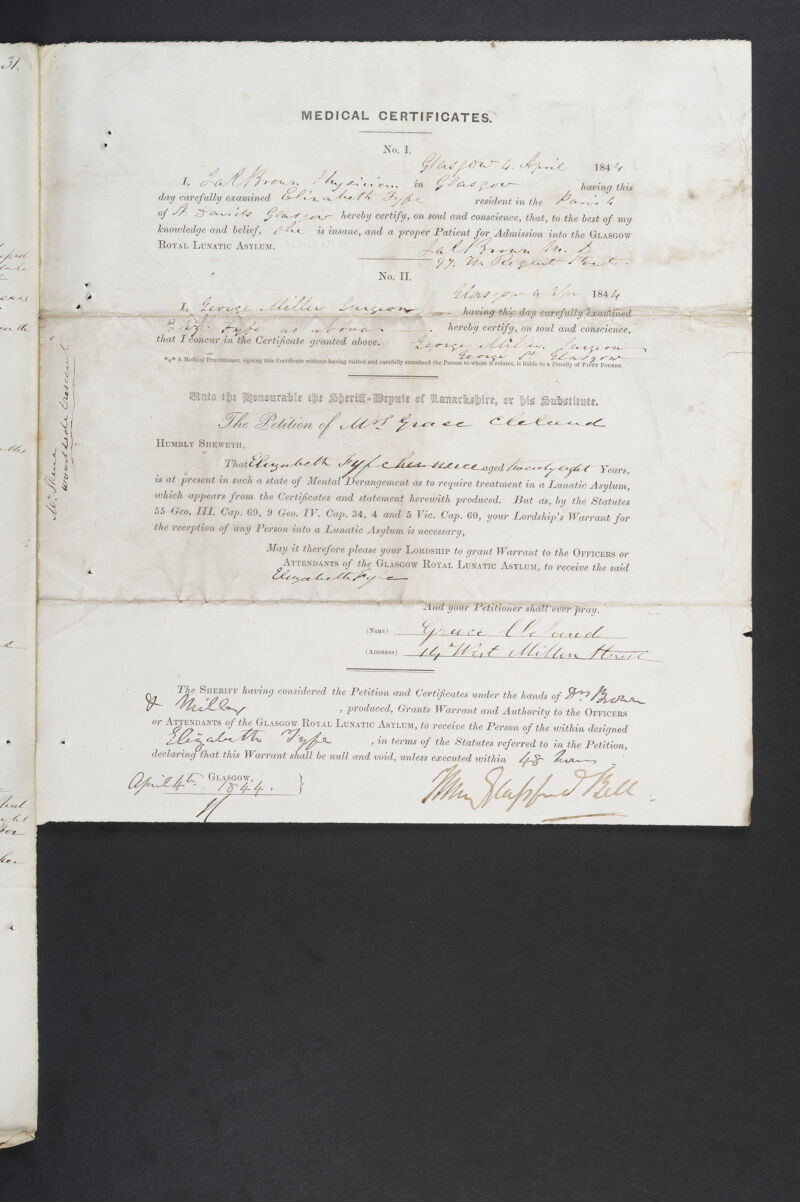 31.
MEDICAL CERTIFICATES.
No. I.
Glasgow 4. April 1844
I, Ja R Brown Physician in Glasgow having this
day carefully examined Elizabeth Fyfe resident in the Parish
of St Davids Glasgow hereby certify, on soul and conscience, that, to the best of my
knowledge and belief, She is insane, and a proper Patient for Admission into the GLASGOW
ROYAL LUNATIC ASYLUM. Ja R Brown M. D
97. W. Regent Street
No. II.
Glasgow 4 Apr 1844
I, George Miller Surgeon having this day carefully examined
Eliz: Fyfe as above hereby certify, on soul and conscience,
that I concur in the Certificate granted above. George Miller, Surgeon
George St Glasgow
*** A Medical Practitioner, signing this Certificate without having visited and carefully examined the Person to whom it relates, is liable to a Penalty of FIFTY POUNDS.
Unto the Honourable the Sheriff-Depute of Lanarkshire, or his Substitute,
The Petition of Mrs Grace Cleland
HUMBLY SHEWETH,
That Elizabeth Fyfe her neice aged twenty eight Years,
is at present in such a state of Mental Derangement as to require treatment in a Lunatic Asylum,
which appears from the Certificates and statement herewith produced. But as, by the Statutes
55 Geo. III. Cap. 69, 9 Geo. IV. Cap. 34, 4 and 5 Vic. Cap. 60, your Lordship's Warrant for
the reception of any Person into a Lunatic Asylum is necessary,
May it therefore please your LORDSHIP to grant Warrant to the OFFICERS or
ATTENDANTS of the GLASGOW ROYAL LUNATIC ASYLUM, to receive the said
Elizabeth Fyfe
And your Petitioner shall ever pray.
(NAME) Grace Cleland
(ADDRESS) 14 West Milton Street
The SHERIFF having considered the Petition and Certificates under the hands of Drs Brown
& Miller, produced, Grants Warrant and Authority to the OFFICERS
or ATTENDANTS of the GLASGOW ROYAL LUNATIC ASYLUM, to receive the Person of the within designed
Elizabeth Fyfe, in terms of the Statutes referred to in the Petition,
declaring that this Warrant shall be null and void, unless executed within 48 hours
GLASGOW,
April 4th. 1844. }
Henry Glassford Bell
Mr. Skene
Woodside Crescent